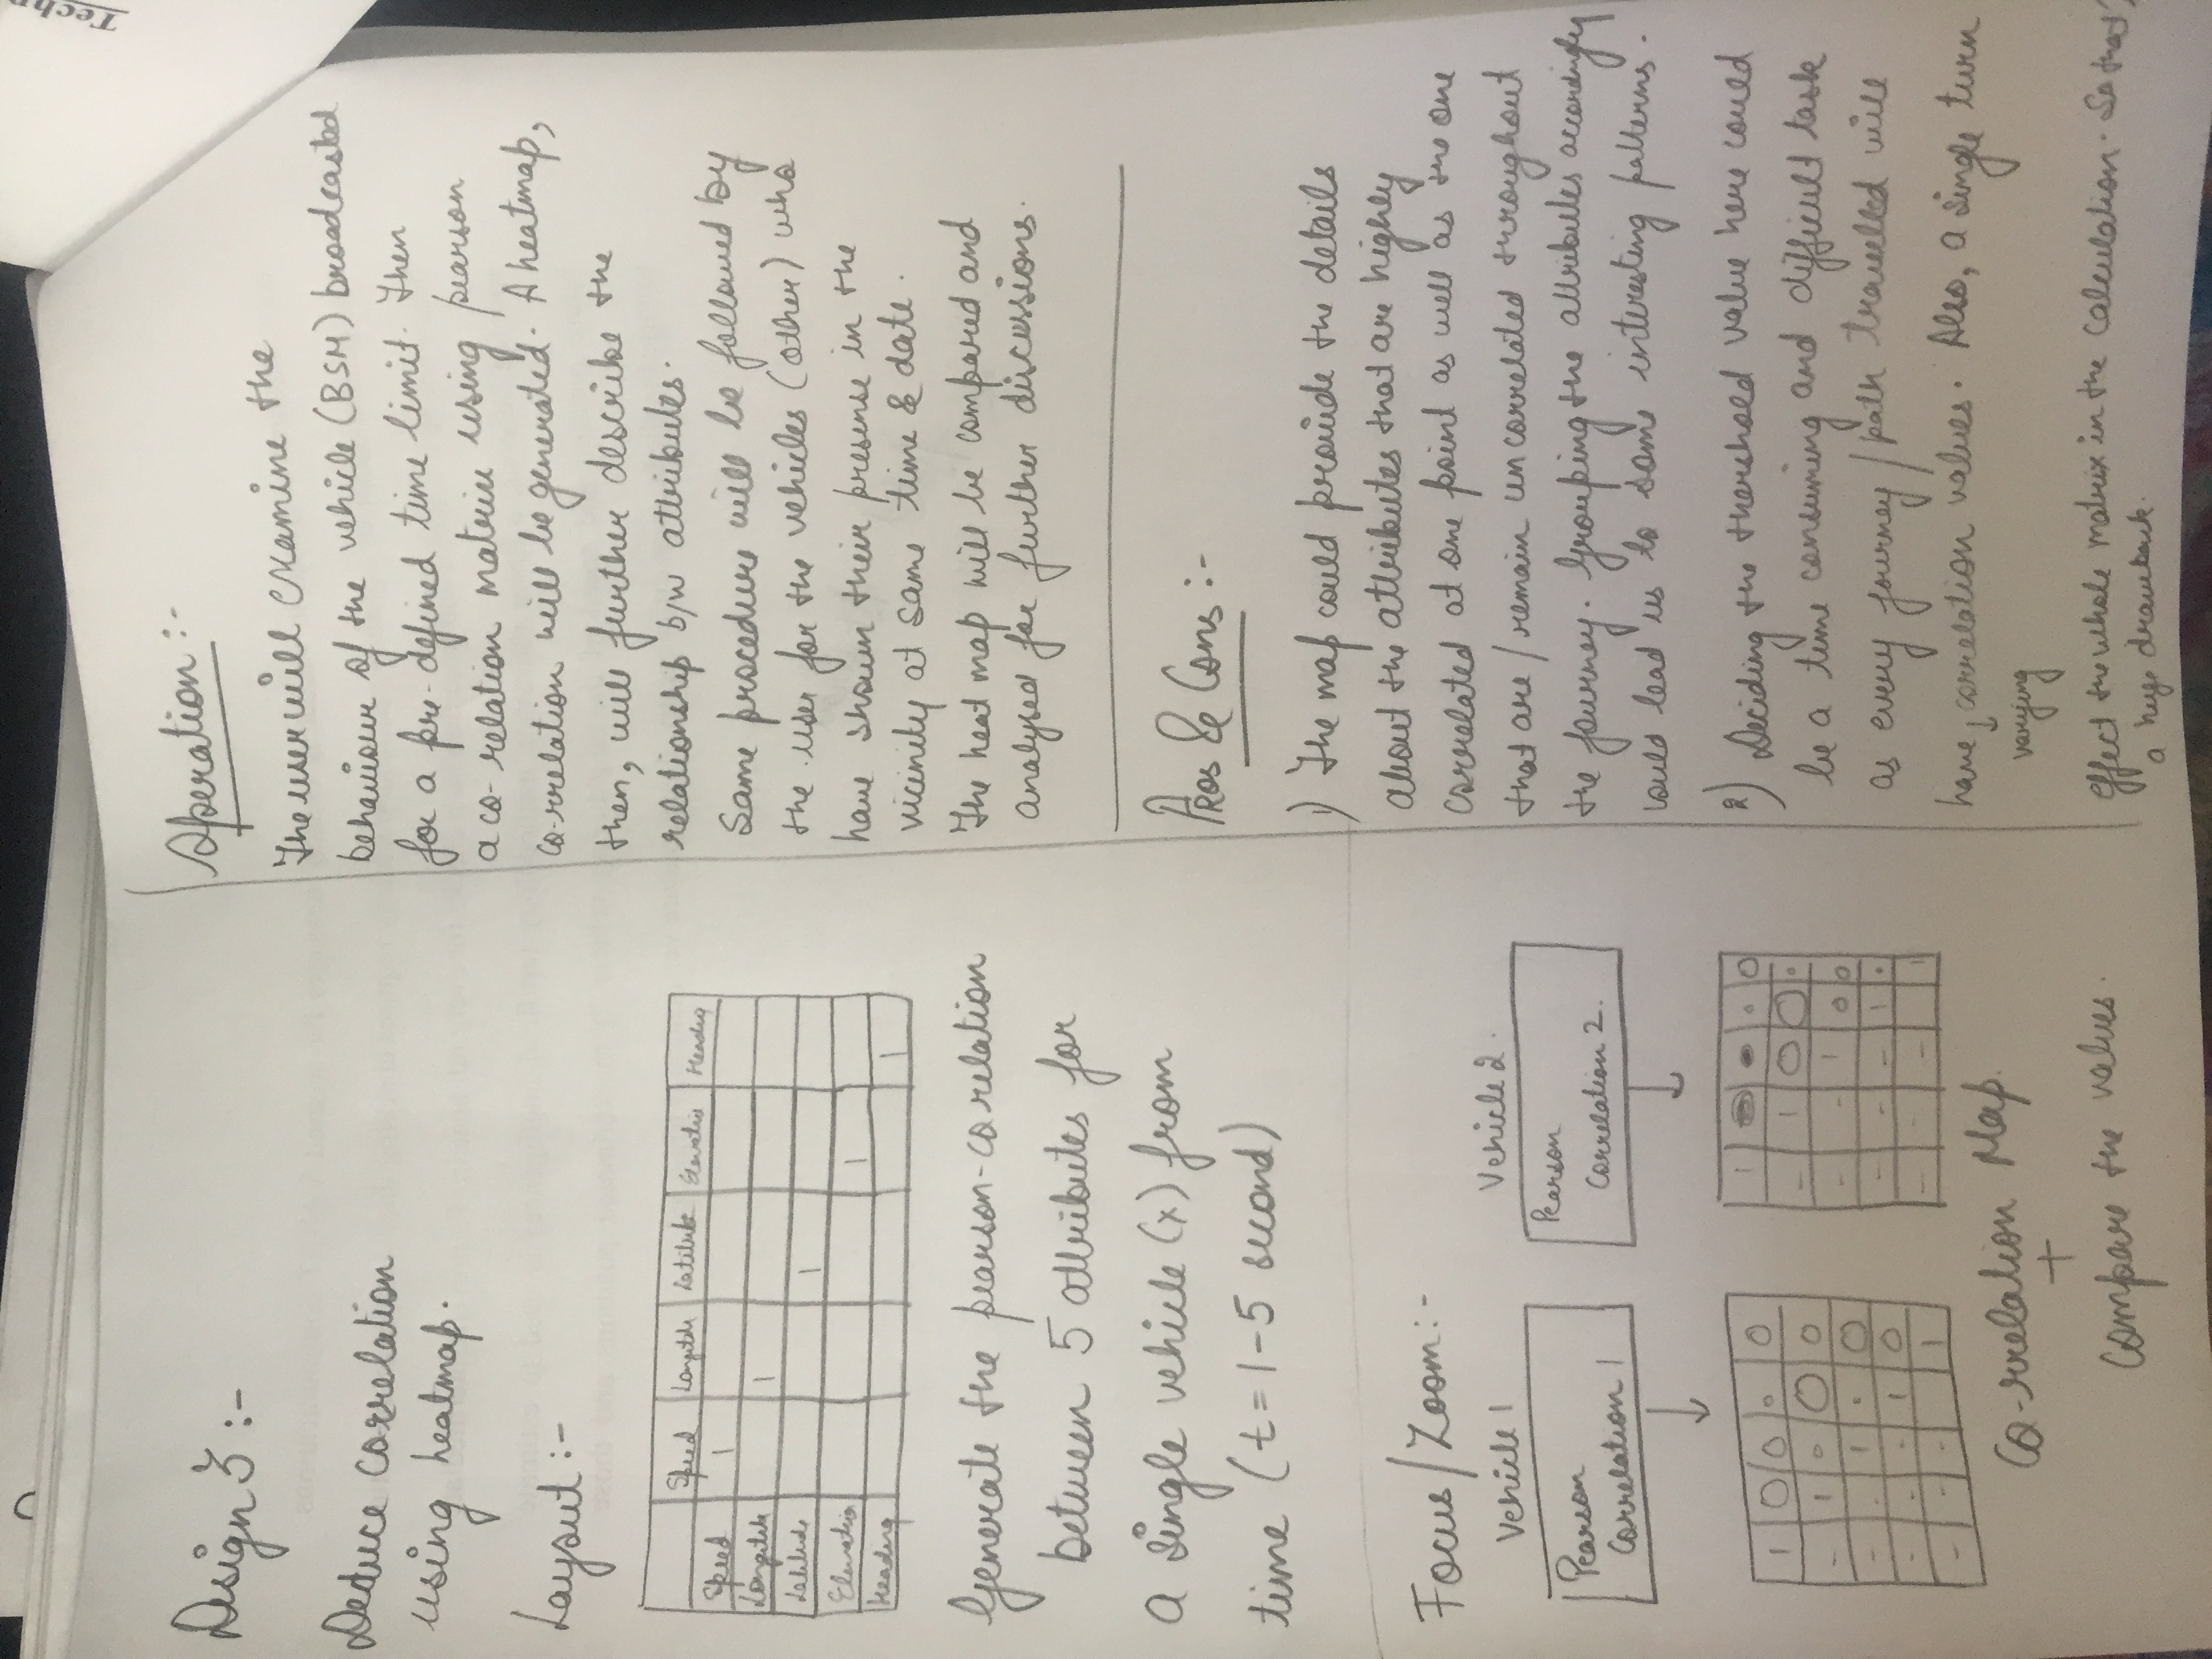 Design 3 :-
Deduce correlation
using heatmap.
Layout :-
Speed Longitde Latitude Elevatio Heading
Speed 1
Longitde 1
Latitude 1
Elevation 1
Heading 1
Generate the pearson-corelation
between 5 attributes for
a single vehicle (x) from
time (t = 1-5 second)
Focus/Zoom :-
Vehicle 1 Vehicle 2.
Pearson
Correlation 1
Pearson
Correlation 2.
1
- 1
- - 1
- - - 1
- - - 1
1
- 1
- - 1
- - - 1
- - - 1
Co-rrelation Map.
+
Compare the values.
Operation :-
The user will examine the
behaviour of the vehicle (BSM) broadcasted
for a pre-defined time limit. Then
a co-relation matrix using pearson
co-rrelation will be generated. A heatmap,
then, will further describe the
relationship b/w attributes.
Same procedure will be followed by
the user for the vehicles (other) who
have shown their presense in the
vicinity at same time & date.
The heat map will be compared and
analysed for further discussions.
Pros & Cons :-
1) The map could provide the details
about the attributes that are highly
correlated at one point as well as the one
that are/remain uncorrelated throughout
the journey. Grouping the attributes accordingly
could lead us to some interesting patterns.
2) Deciding the thershold value here could
be a time consuming and difficult task
as every journey/path travelled will
have ↓ correlation values. Also, a single turn
varying
effect the whole matrix in the calculation. So that's
a huge drawback.
Tech